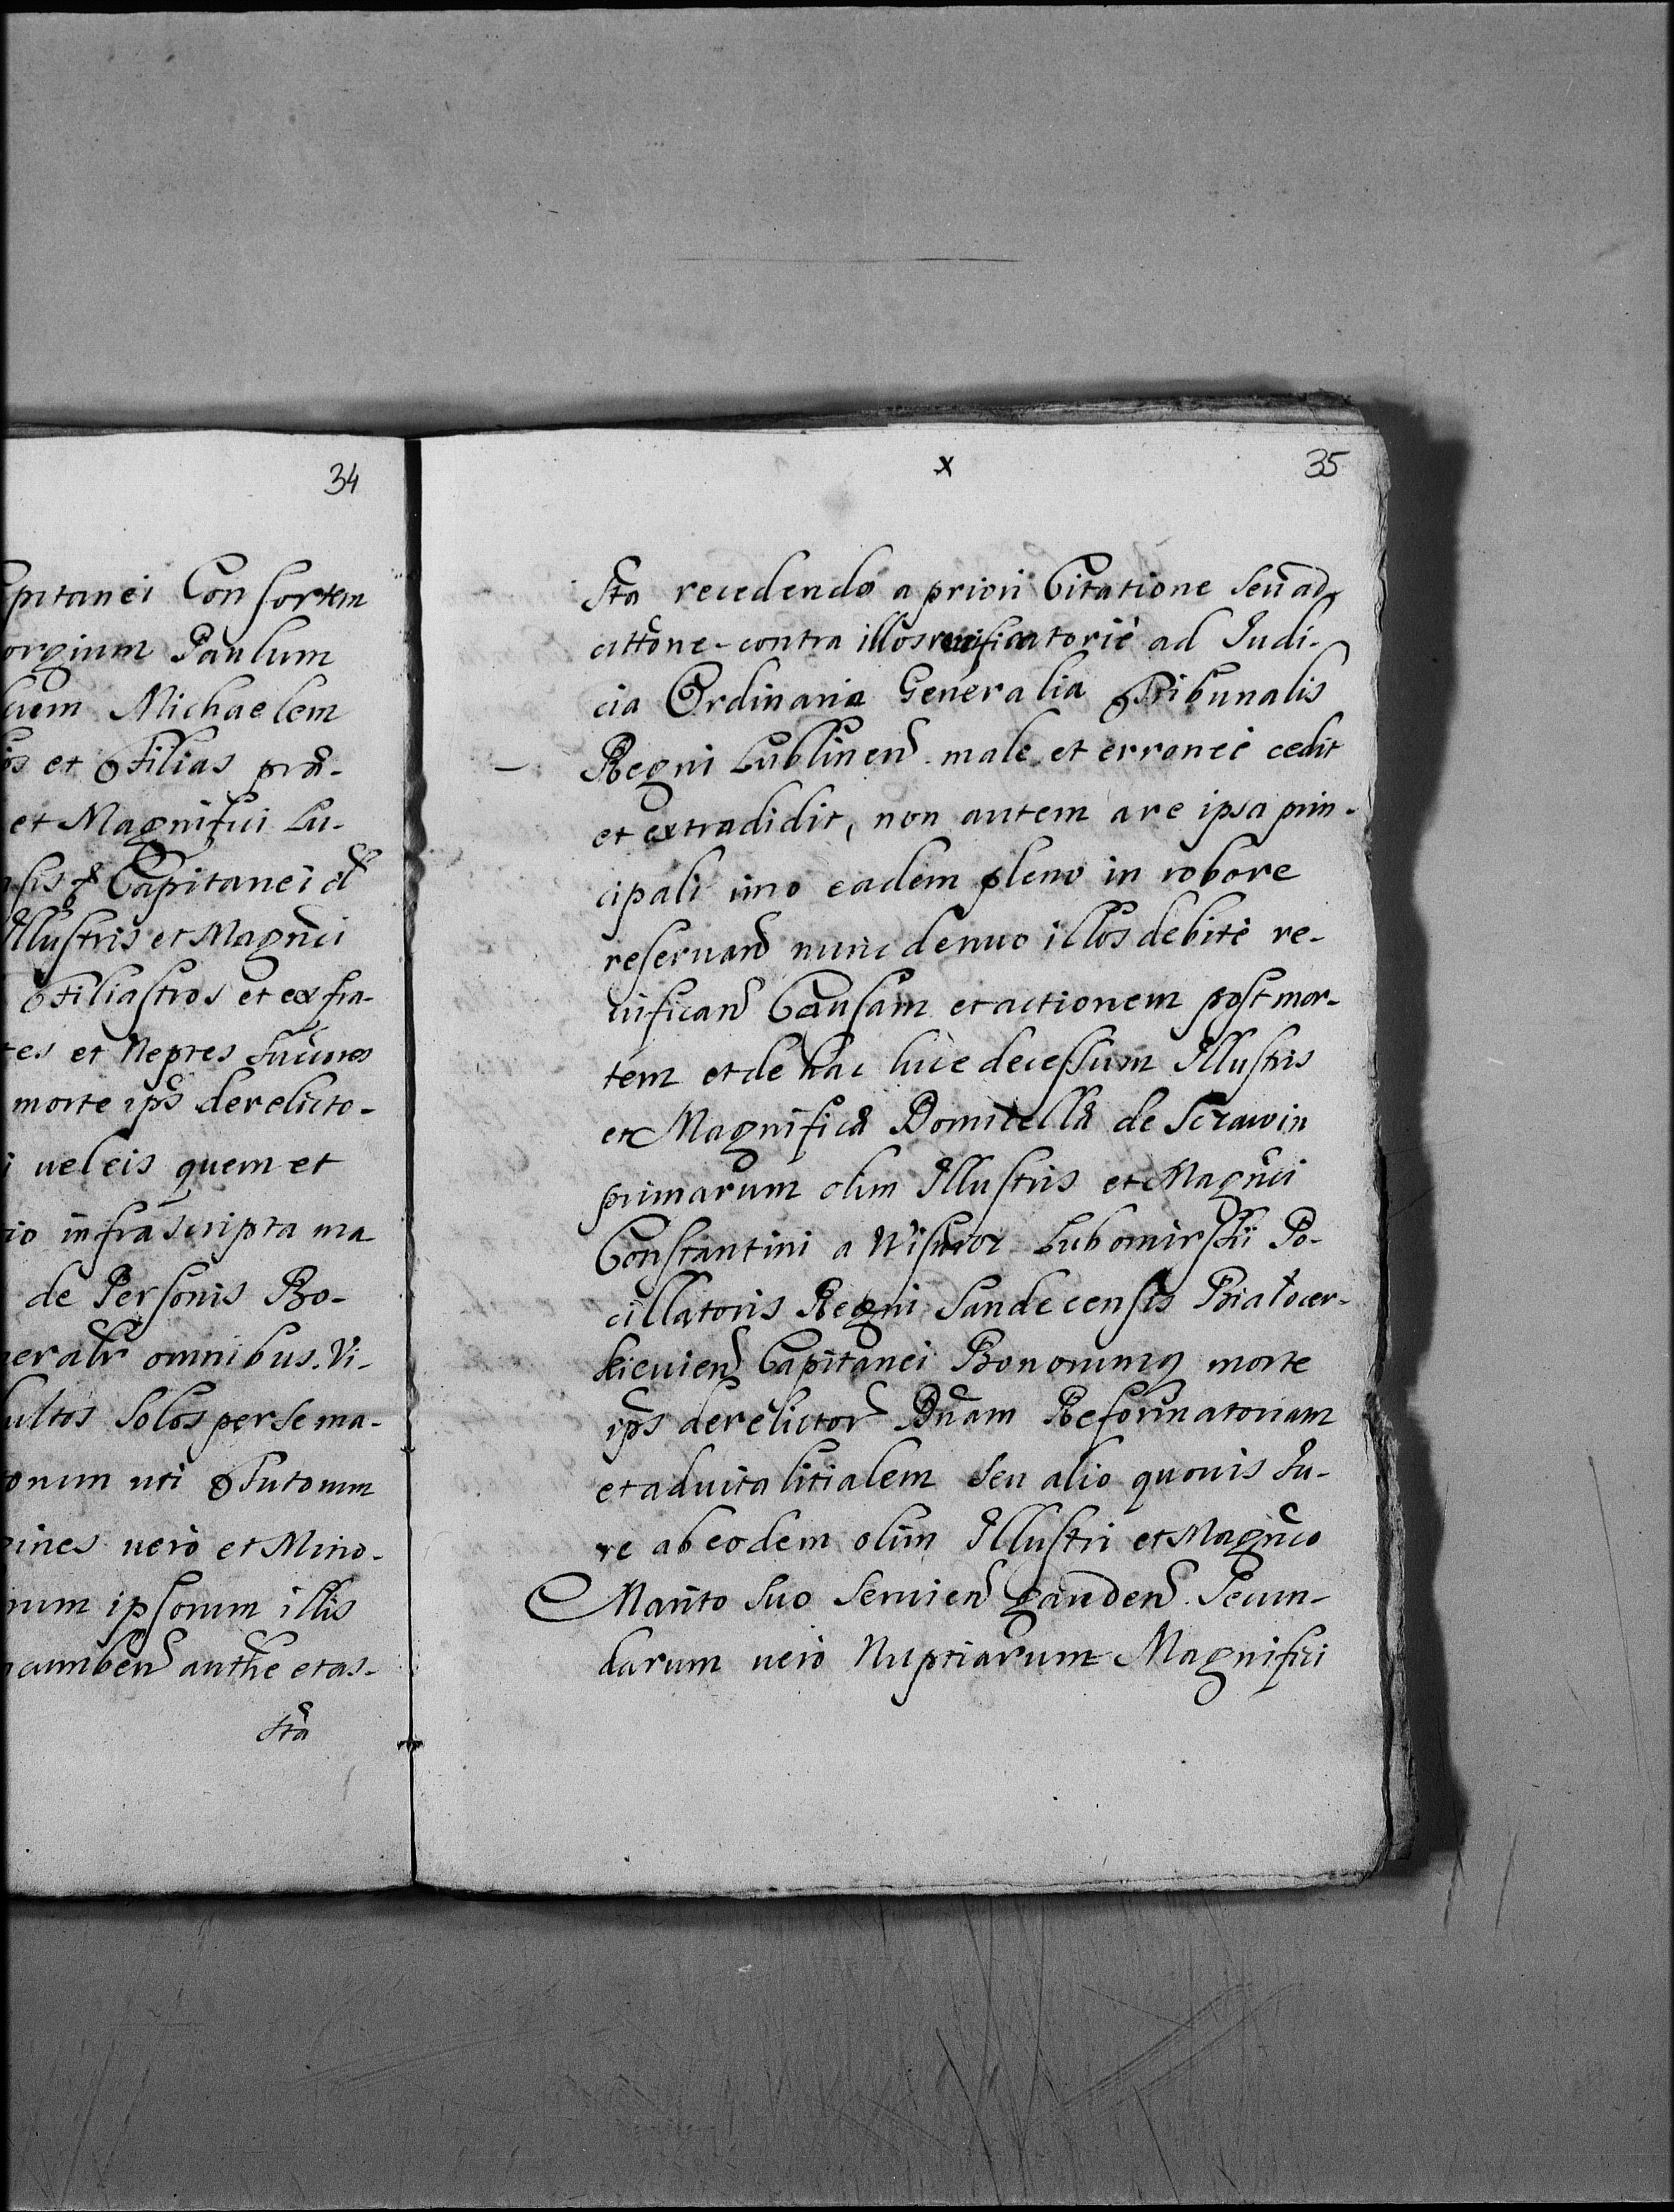 34
pitanei Consortem
orgium Paulum
uem Michaelem
os et Filias præ-
et Magnifici Lu-
sis & Capitanei &
Illustris et Magnci
Filiastros et ex fra-
tes et Neptes
morte ips derelicto-
i ueleis quem et
io infrascripta ma
de Personis Bo-
neralr omnibus. Vi-
ultos Solos per se ma-
orum uti Tutorum
ines uero et Mino-
num ipsorum illis
cumben authe et as-
sta
x 35
sta recedendo a priori Citatione seu ad
cittone - contra illos ad Judi-
cia Ordinaria Generalia Tribunalis
Regni Lublinen male et erronee cedit
et extradidit, non autem a re ipsa prin-
cipali imo eadem pleno in robore
reseruan nunc denuo illos debite re-
uifican Causam et actionem post mor-
tem et de hac luce decessum Illustris
et Magnificæ Domicellæ de Sczawin
primarum olim Illustris et Magnci
Constantini a Wisnicz Lubomirskii Po-
cillatoris Regni Sandecensis Białocer-
kieuien Capitanei Bonorumq morte
ips derelictor Dnam Reformatoriam
et aduitalitialem seu alio quouis Ju-
re ab eodem olim Illustri et Magnco
Marito suo seruien gauden. Secun-
darum uero Nuptiarum Magnifici